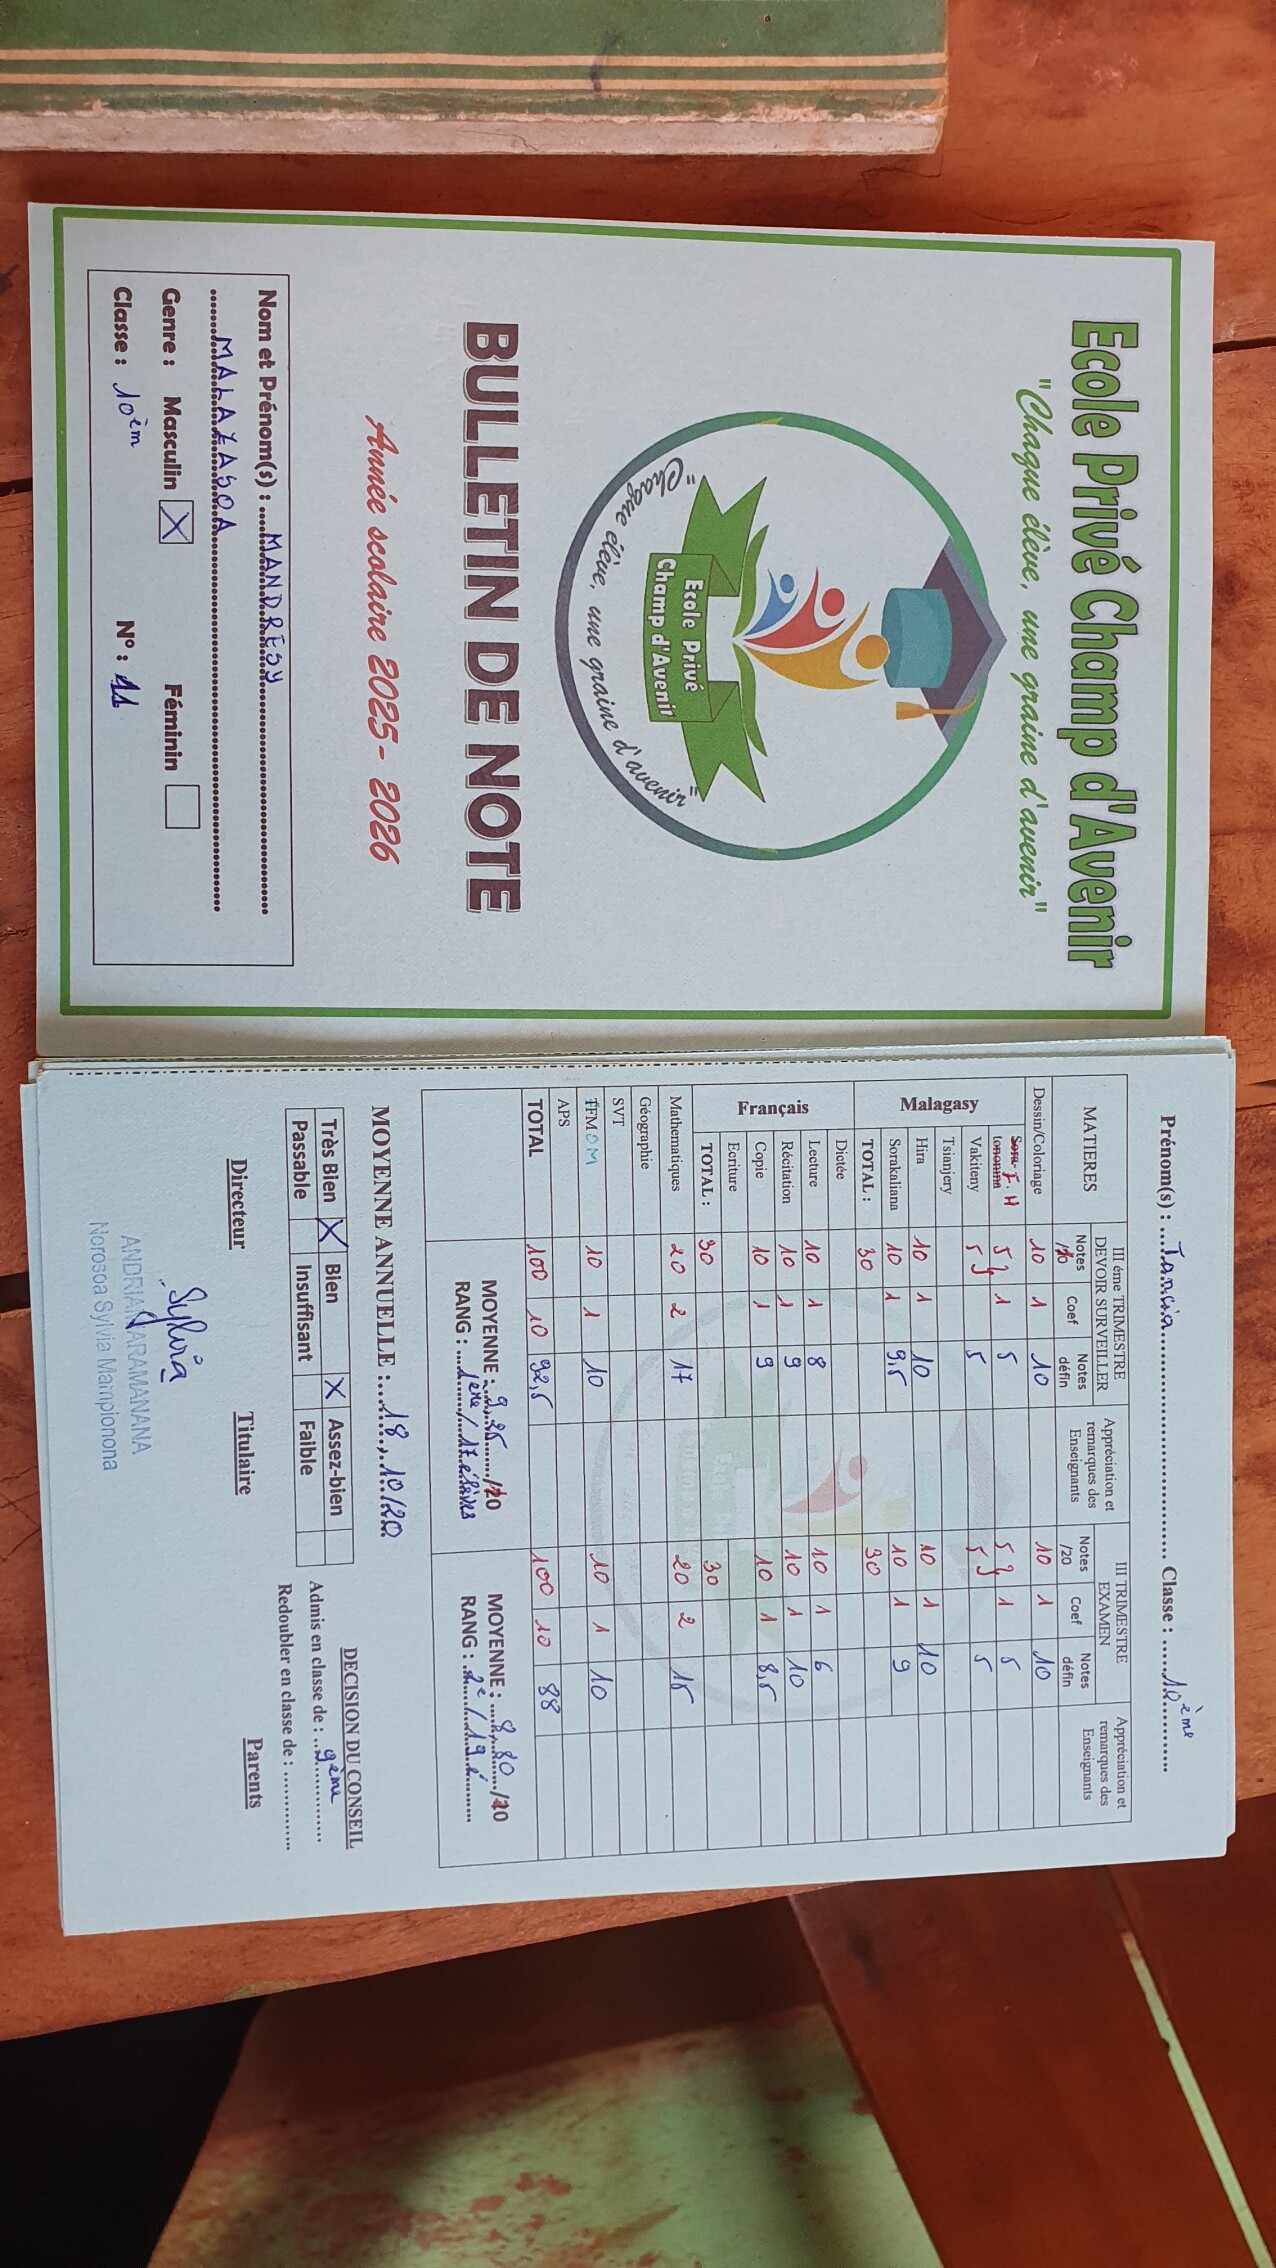 Ecole Privé Champ d'Avenir
"Chaque élève, une graine d'avenir"
Ecole Privé
Champ d'Avenir
"Chaque élève, une graine d'avenir"
BULLETIN DE NOTE
Année scolaire 2025- 2026
Nom et Prénom(s) : MANDRESY
MALAZASOA
Genre : Masculin X Féminin
Classe : 10èm N° : 11
Prénom(s) : Classe : 10ème
MATIERES III éme TRIMESTRE DEVOIR SURVEILLER Appréciation et remarques des Enseignants III TRIMESTRE EXAMEN Appréciation et remarques des Enseignants
Notes Coef Notes défin Notes /20 Coef Notes défin
Dessin/Coloriage 10 1 10 10 1 10
F.H 5} 1 5 5} 1 5
Malagasy Vakiteny 5} 5 5} 5
Tsianjery
Hira 10 1 10 10 1 10
Sorakaliana 10 1 9,5 10 1 9
TOTAL : 30 30
Français Dictée
Lecture 10 1 8 10 1 6
Récitation 10 1 9 10 1 10
Copie 10 1 9 10 1 8,5
Ecriture
TOTAL : 30 30
Mathematiques 20 2 17 20 2 15
Géographie
SVT
TFM OM 10 1 10 10 1 10
APS
TOTAL 100 10 92,5 100 10 88
MOYENNE : 9,25/10 MOYENNE : 8,80/10
RANG : 1ère/17 élèves RANG : 2e/19 é
MOYENNE ANNUELLE : 18,10/20
Très Bien X Bien X Assez-bien
Passable Insuffisant Faible
DECISION DU CONSEIL
Admis en classe de : 9ème
Redoubler en classe de :
Directeur Titulaire Parents
Sylvia
ANDRIANARAMANANA
Norosoa Sylvia Mampionona